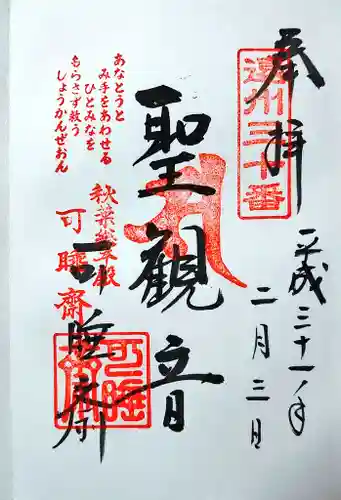 奉拝
遠州三十三番
平成三十一年
二月三日
聖観音
あなとうと
み手をあわせる
ひとみなを
もらさず救う
しょうかんぜおん
秋葉総本殿
可睡齋
可睡齋